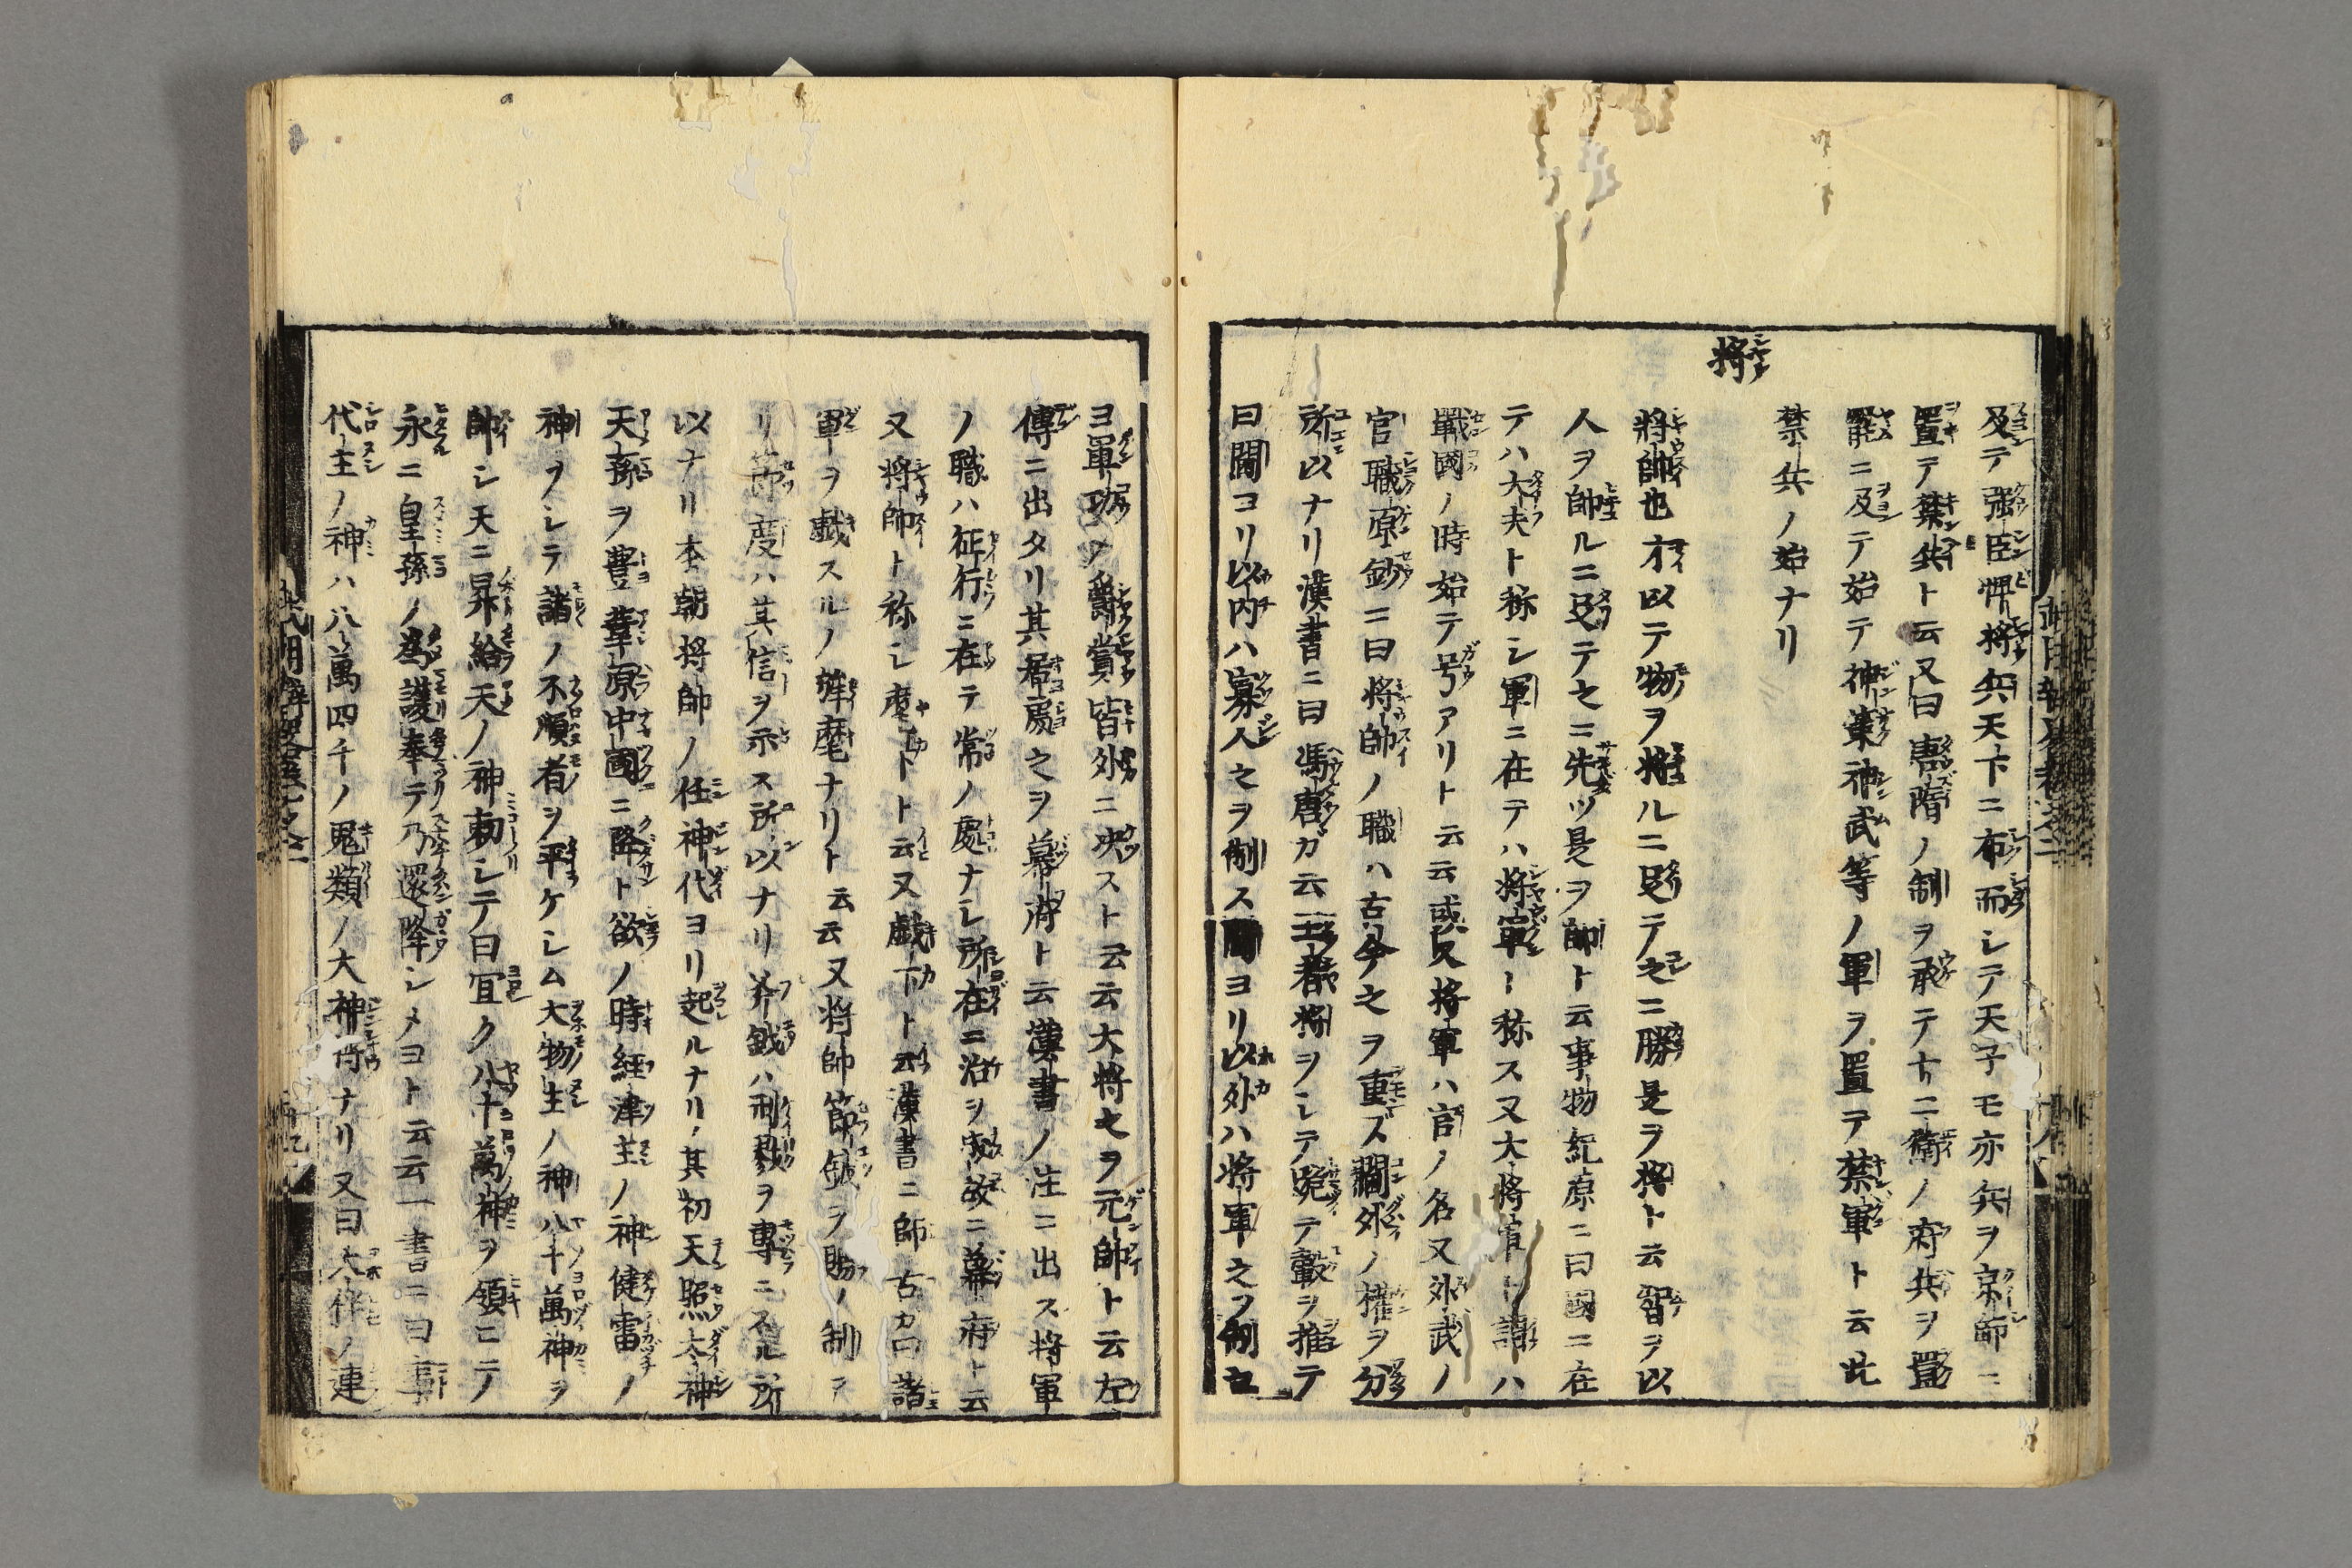 及テ強臣悍将兵天下ニ布而シテ天子モ亦兵ヲ京師ニ
置テ禁兵ト云又曰唐隋ノ制ヲ承テ十二衛ノ府兵ヲ置
罷ニ及テ始テ神策神武等ノ軍ヲ置テ禁軍ト云此
禁兵ノ始ナリ
将
将帥也才以テ物ヲ将ルニ足テ之ニ勝是ヲ将ト云智ヲ以
人ヲ帥ルニ足テ之ニ先ツ是ヲ帥ト云事物紀原ニ曰國ニ在
テハ大夫ト称シ軍ニ在テハ将軍ト称ス又大将官ト謂ハ
戦國ノ時始テ号アリト云云或又将軍ハ官ノ名又外武ノ
官職原鈔ニ曰将帥ノ職ハ古今之ヲ重ズ閫外ノ権ヲ分
所以ナリ漢書ニ曰馮唐ガ云王者将ヲシテ跪テ轂ヲ推テ
曰閫ヨリ以内ハ寡人之ヲ制ス閫ヨリ以外ハ将軍之ヲ制セ
ヨ軍功爵賞皆外ニ决スト云云大将之ヲ元帥ト云左
傳ニ出タリ其居處之ヲ幕府ト云漢書ノ注ニ出ス将軍
ノ職ハ征行ニ在テ常ノ處ナシ所在ニ治ヲ為故ニ幕府ト云
又将帥ト称シ麾下ト云又戯下ト云漢書ニ師古カ曰諸
軍ヲ戯スルノ旌麾ナリト云云又将帥節鉞ヲ賜ノ制ア
リ節度ハ其信ヲ示ス所以ナリ斧鉞ハ刑戮ヲ専ニスル所
以ナリ本朝将帥ノ任神代ヨリ起ルナリ其初天照太神
天孫ヲ豊葦原中國ニ降ト欲ノ時経津主ノ神健雷ノ
神ヲシテ諸ノ不順者ヲ平ケシム大物主ノ神八十萬神ヲ
帥シ天ニ昇給天ノ神勅シテ曰宜ク八十萬神ヲ領ヒテ
永ニ皇孫ノ為護奉テ乃還降シメヨト云云一書ニ曰事
代主ノ神ハ八萬四千ノ鬼類ノ大神ナリ又曰大伴ノ連